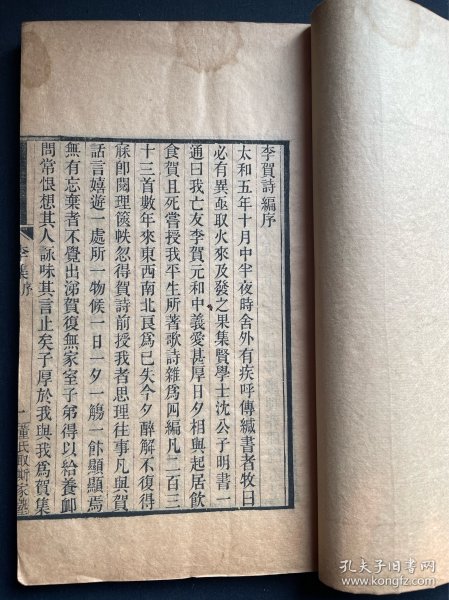 李賀詩編序
太和五年十月中半夜時舍外有疾呼傳緘書者牧曰
必有異亟取火來及發之果集賢學士沈公子明書一
通曰我亡友李賀元和中義愛甚厚日夕相與起居飲
食賀且死嘗授我平生所著歌詩雜爲四編凡二百三
十三首數年來東西南北良爲已失今夕醉解不復得
寐卽閱理篋帙忽得賀詩前授我者思理往事凡與賀
話言嬉遊一處所一物候一日一夕一觴一飰顯顯焉
無有忘棄者不覺出涕賀復無家室子弟得以給養卹
問常恨想其人詠味其言止矣子厚於我與我爲賀集
李集序
一
董氏取斯家塾
孔夫子旧书网
www.kongfz.com